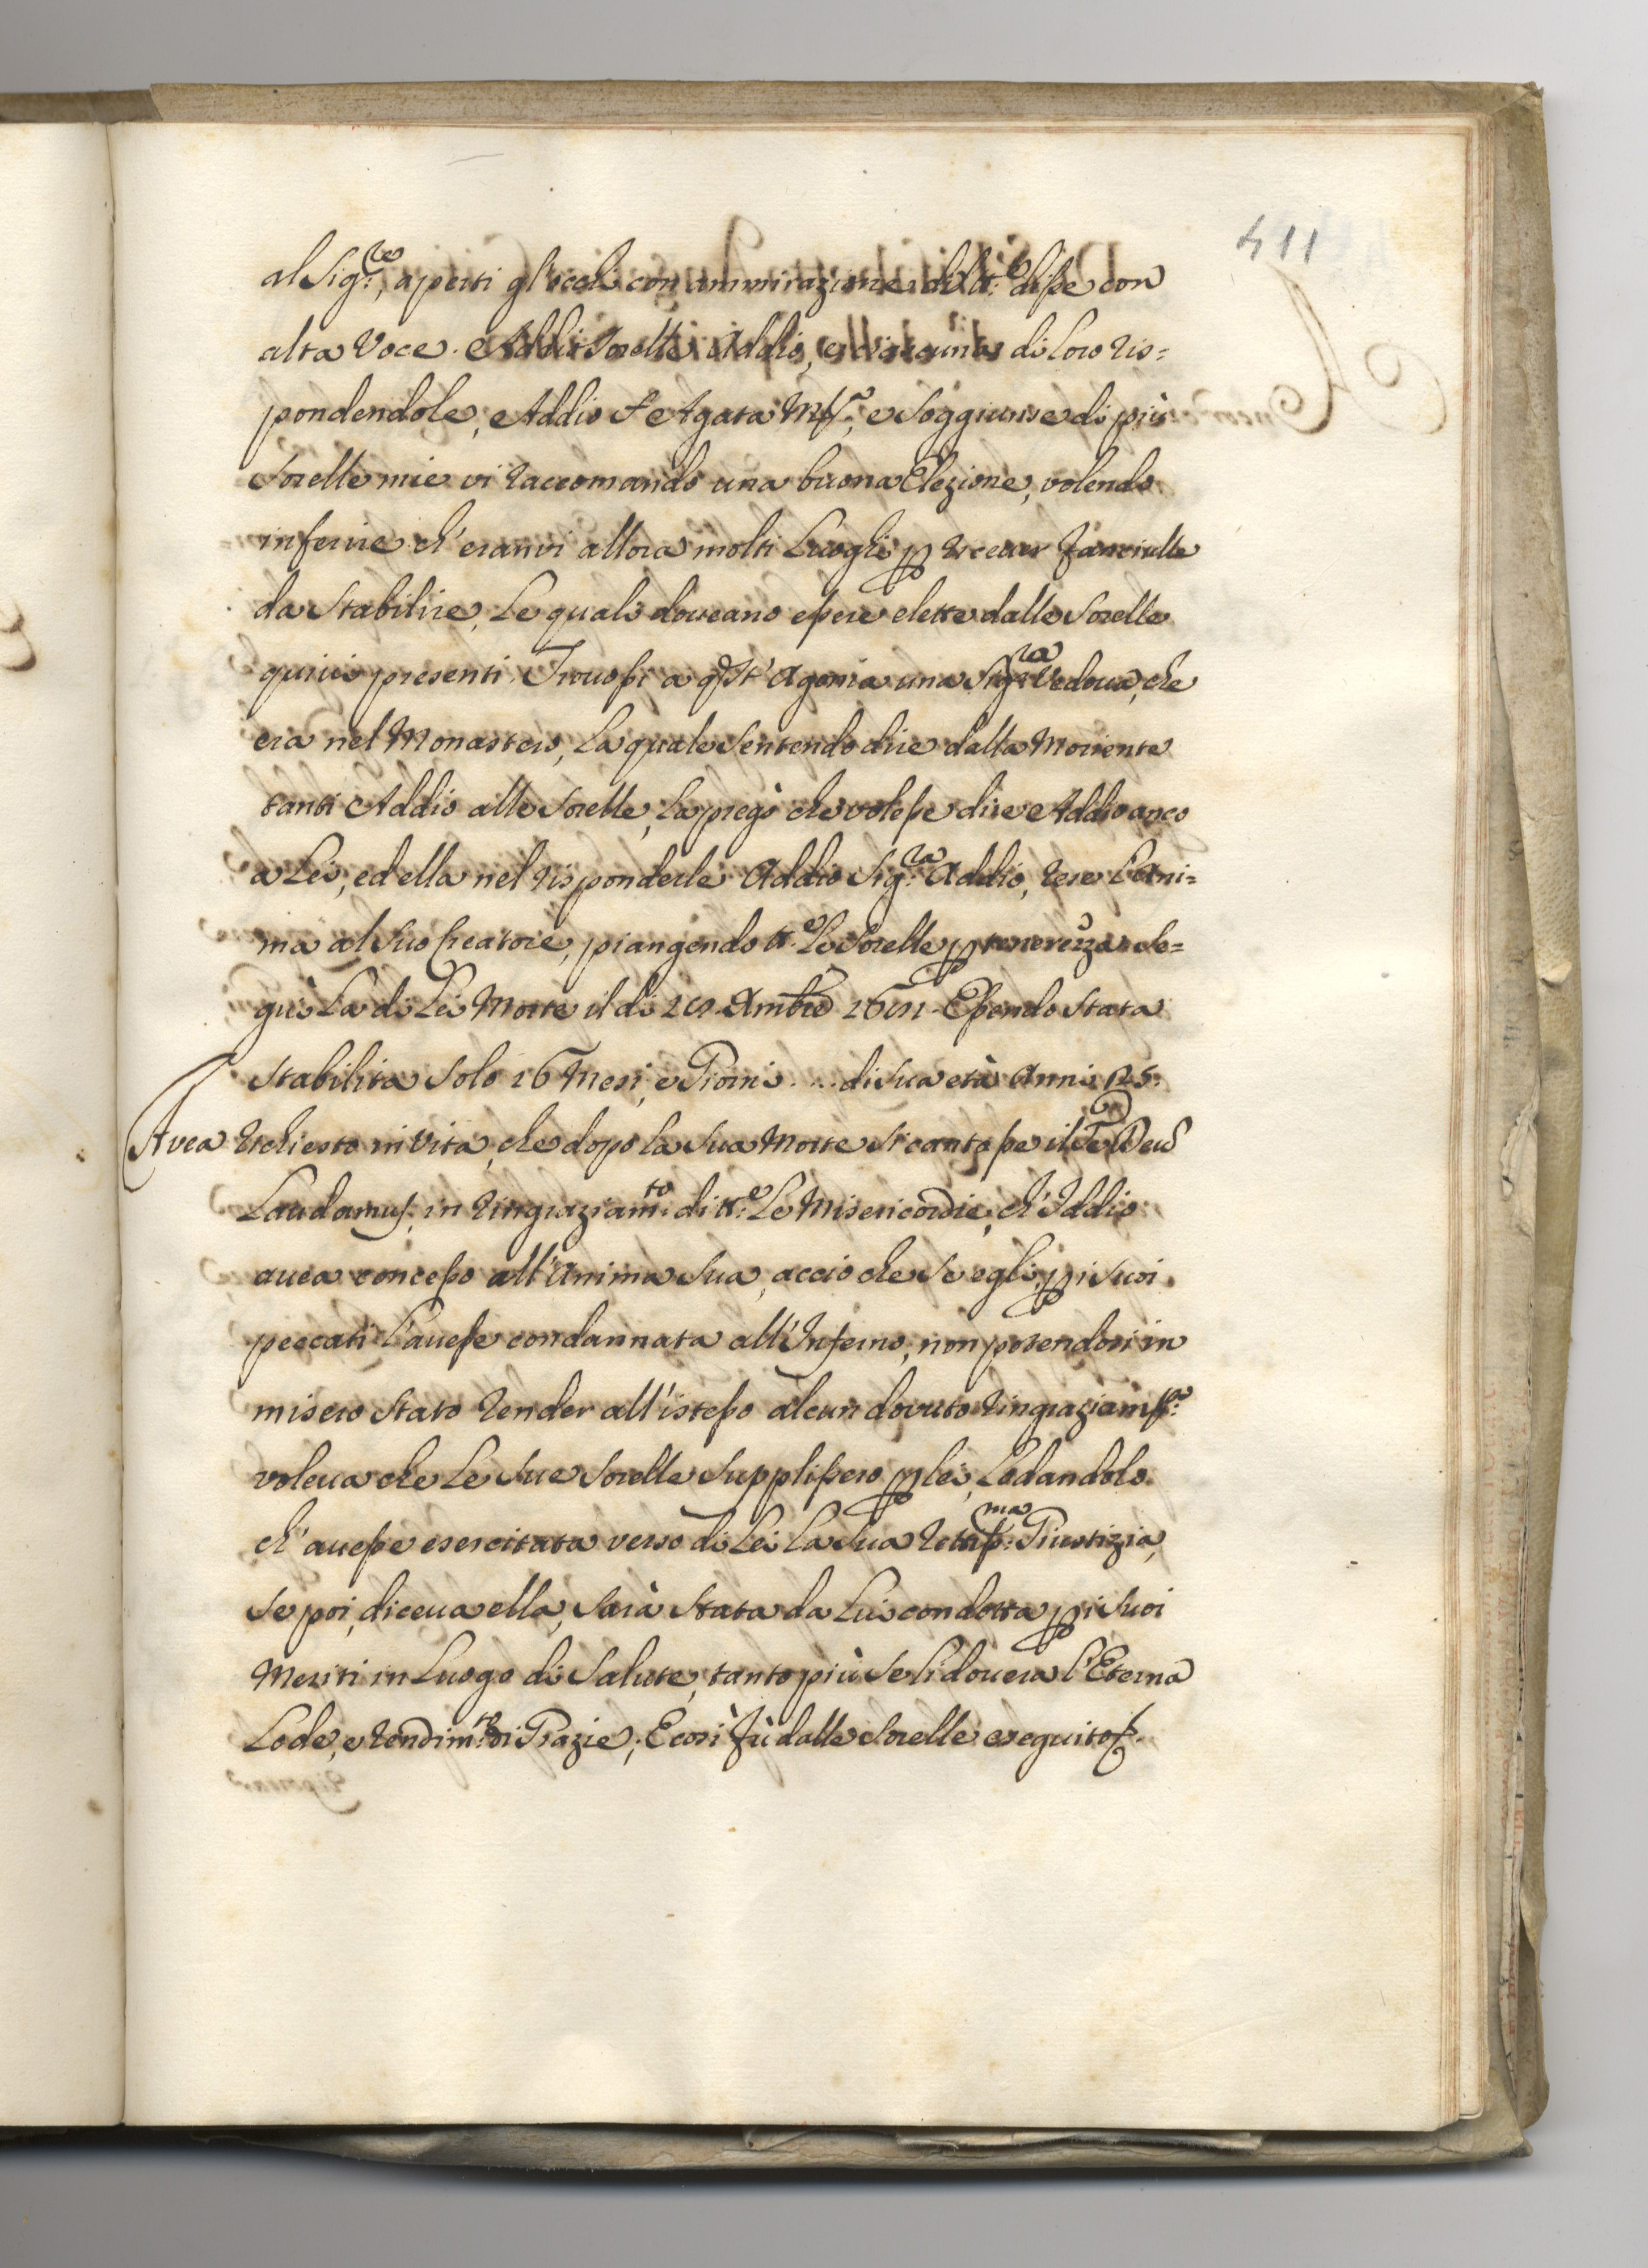 411
al Sig.re, aperti gl'occhi con ammirazione di tt.e disse con
alta Voce. Addio Sorelle Addio, e ciascuna di Loro ris=
pondendole, Addio S.r Agata M.a, e Soggiunse di più
Sorelle mie vi raccomando una buona Elezione, volendo
inferire ch'eranvi allora molti Luoghi p ricever Fanciulle
da Stabilire, Le quali doveano essere elette dalle Sorelle
quivi presenti. Trovossi a qst' Agonia una Sig.ra Vedova, che
era nel Monastero, La quale Sentendo dire dalla Moriente
tanti Addio alle Sorelle, La pregò che volesse dire Addio anco
a Lei, ed ella nel risponderle Addio Sig.ra Addio, rese l'Ani=
ma al Suo Creatore, piangendo tt.e Le Sorelle p tenerezza. Se=
guì La di Lei Morte il dì Xmbre Essendo Stata
Stabilita Solo 16 Mesi, e Giorni .... di Sua età Anni 25.
Avea richiesto in Vita, che dopo la Sua Morte Si cantasse il Te Deu
Laudamus, in ringraziam.to di tt.e Le Misericordie, ch'Iddio
avea concesso all'Anima Sua, acciò che Se egli p i Suoi
peccati l'avesse condannata all'Inferno, non potendosi in
misero Stato render all'istesso alcun dovuto ringraziam
voleva che Le Sue Sorelle Supplissero p lei, Lodandolo
ch'avesse esercitata verso di Lei La Sua rettiss.ma Giustizia,
Se poi, diceva ella, Sarà Stata da Lui condotta p i Suoi
Meriti in Luogo di Salute, tanto più Se li doverà l'Eterna
Lode, e rendim.to di Grazie; E così Fù dalle Sorelle eseguito.